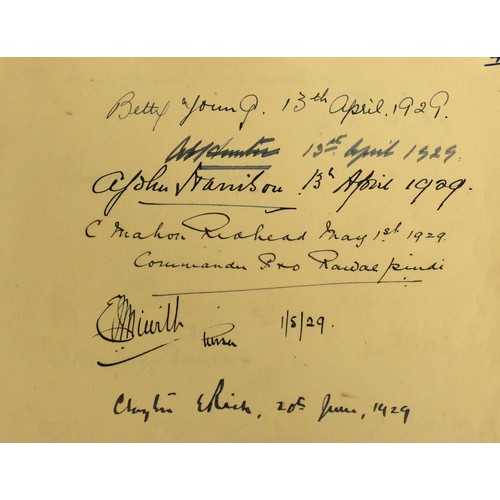 Betty Young. 13th April. 1929.
Hunter 13th April 1929.
A John Harrison. 13th April 1929.
C Mahon Redhead May 1st 1929.
Commander P&O Rawalpindi
Purser 1/5/29.
Clayton E Rich, 20th June, 1929